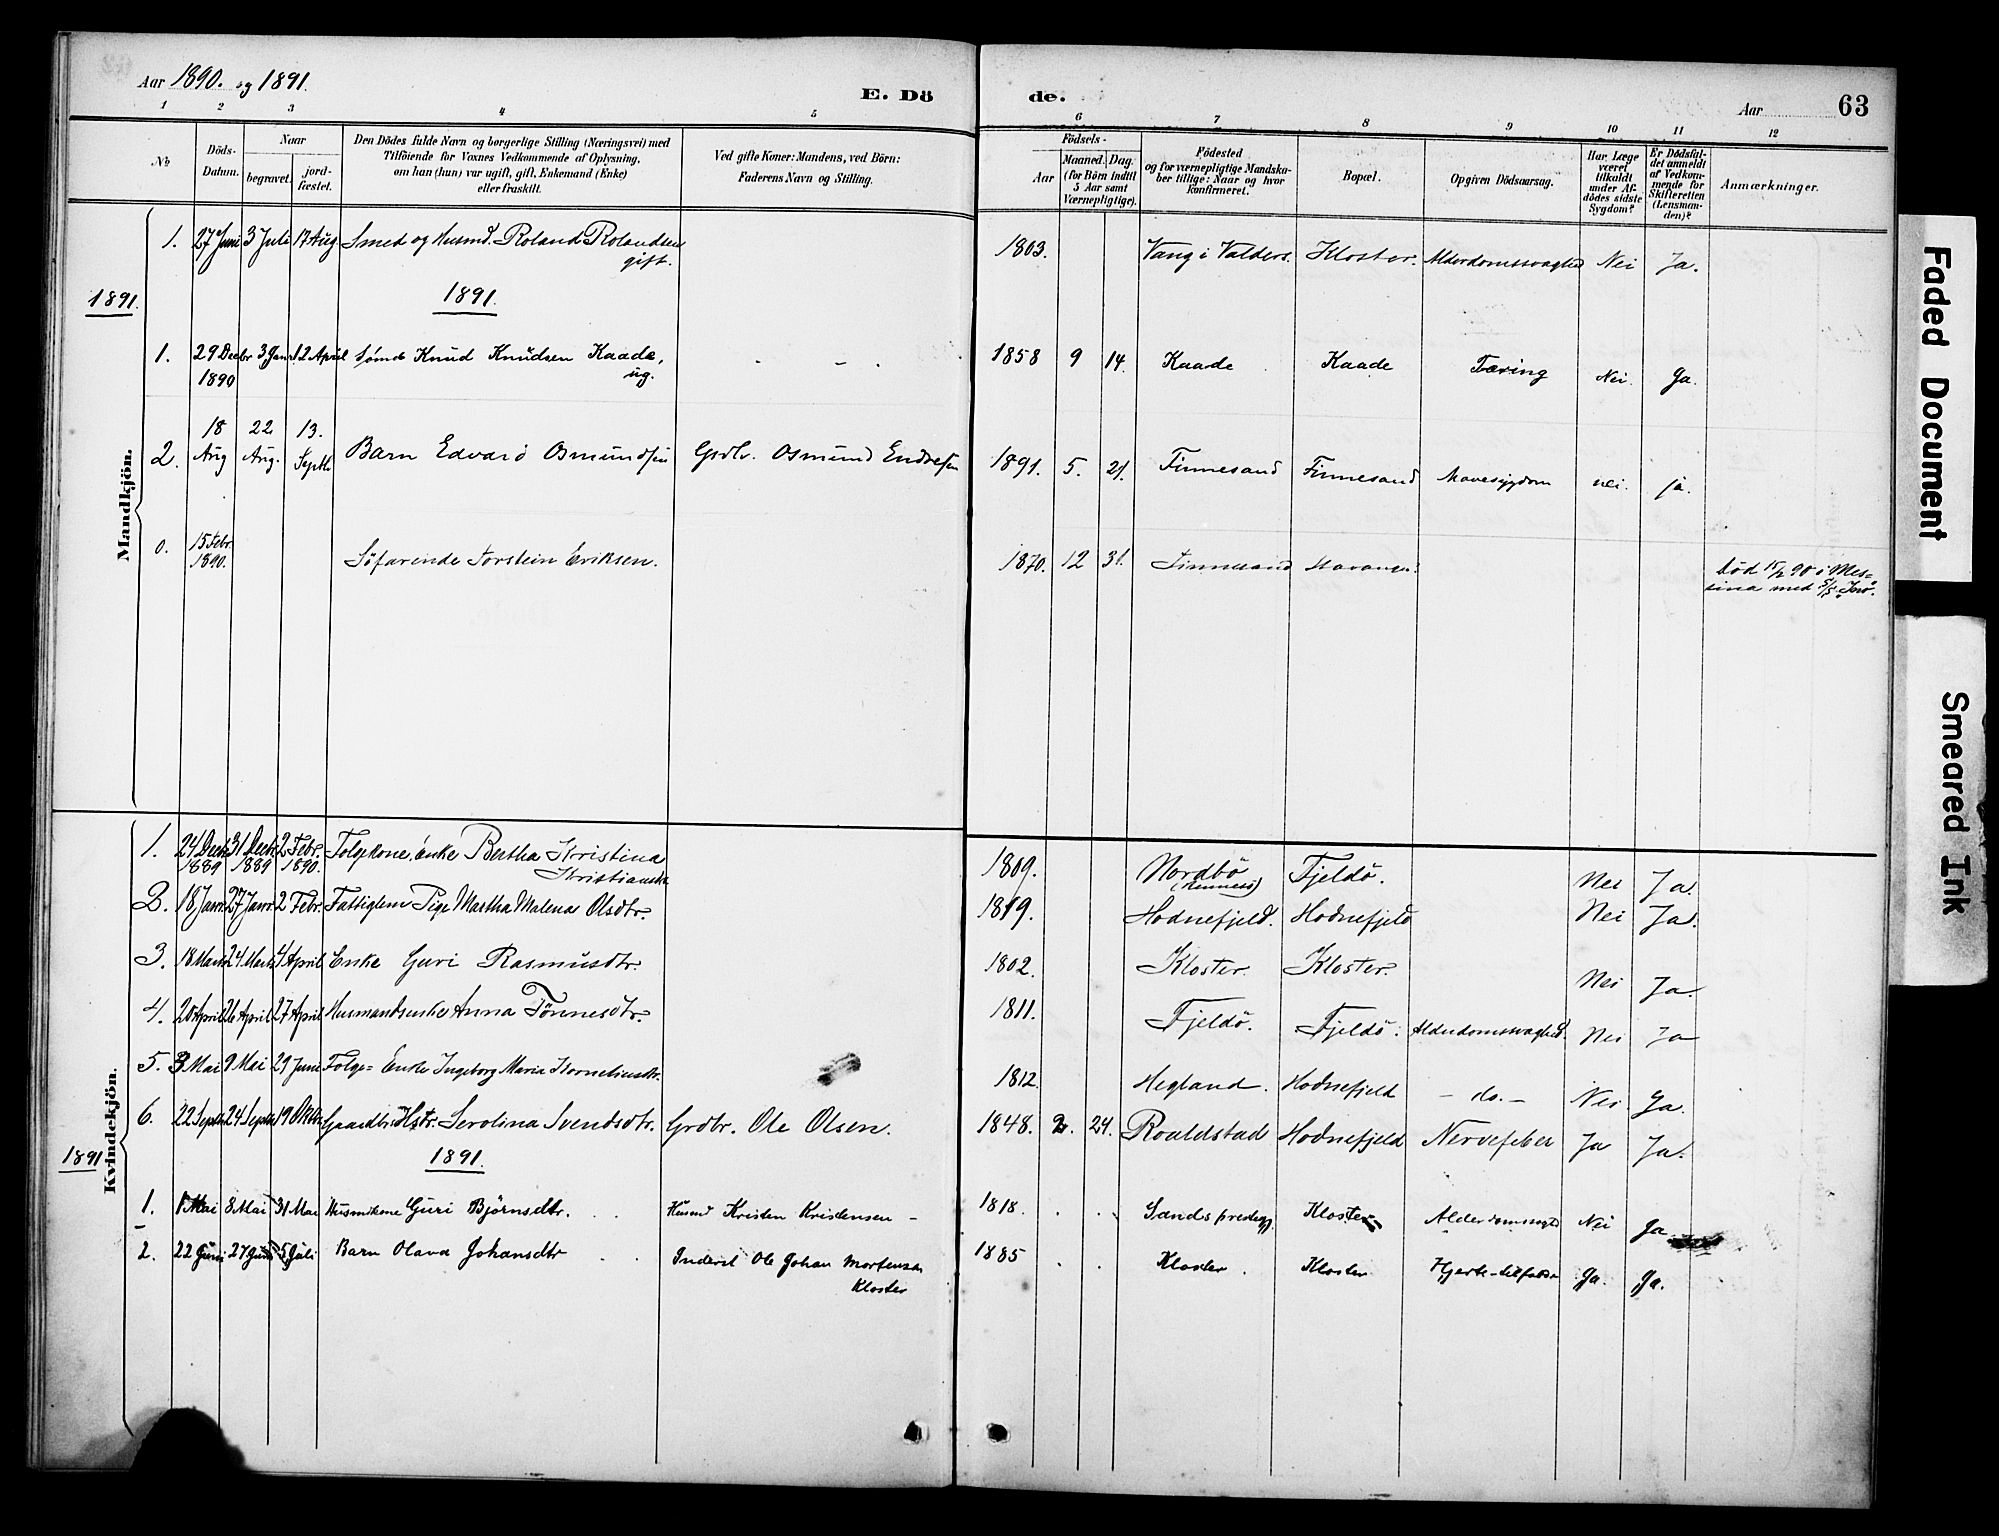 Aar 1890. og 1891.
E. Dö
de.
Aar
63
1 2 3 4 5 6 7 8 9 10 11 12
No
Döds-Datum.
Naar
begravet.
jord-fæstet.
Den Dödes fulde Navn og borgerlige Stilling (Næringsvei) med
Tilföiende for Voxnes Vedkommende af Oplysning,
om han (hun) var ugift, gift, Enkemand (Enke)
eller fraskilt.
Ved gifte Koner: Mandens, ved Börn:
Faderens Navn og Stilling.
Födsels-
Aar
Maaned. Dag.
(for Börn indtil
5 Aar samt
Værnepligtige).
Födested
og for værnepligtige Mandska-
ber tillige: Naar og hvor
konfirmeret.
Bopæl.
Opgiven Dödsaarsag.
Har Læge
været
tilkaldt
under Af-
dödes sidste
Sygdom?
Er Dödsfal-
det anmeldt
af Vedkom-
mende for
Skifteretten
(Lensman-
den)?
Anmærkninger.
Mandkjön.
1. 27 Juni 3 Juli 17 Aug Smed og Husmd. Roland Rolandsen gift. 1803. Vang i Valders. Kloster. Alderdomssvaghed Nei Ja.
1891. 1891.
1. 29 Decbr 1890 3 Janr 12 April Sömd Knud Knudsen Kaade, ug. - - . 1858 9 14. Kaade Kaade Tæring Nei. Ja.
2. 18 Aug 22 Aug. 13. Septb Barn Edvard Osmundsen Grdbr. Osmund Endresen 1891. 5. 21. Finnesand Finnesand Mavesygdom nei. ja.
0. 15 Febr. 1890. Söfarende Torstein Eriksen. 1870. 12 31. Finnesand Stavanger. död 15/2 90 i Mes=
sina med S/S "Ino".
Kvindekjön.
1. 24 Decbr 1889 31 Decbr 1889 2 Febr. 1890. Folgekone, Enke Bertha Kristina Kristiansdtr. 1809. Nordbö (Rennesö) Fjeldö. Nei Ja.
2. 18 Janr 27 Janr 2 Febr. Fattiglem Pige Martha Malena Olsdtr. 1819. Hodnefjeld. Hodnefjeld Nei Ja.
3. 18 Marts 24 Marts 4 April Enke Guri Rasmusdtr. 1802. Kloster. Kloster. Nei Ja.
4. 20 April 26 April 27 April Husmandsenke Anna Tönnesdtr. 1811. Fjeldö. Fjeldö. Alderdomssvaghed. Nei Ja
5. 3 Mai 9 Mai 29 Juni Folge= Enke Ingeborg Maria Korneliusdtr. 1812. Hegland. Hodnefjeld - do. - Nei Ja.
6. 22 Septb 24 Septb 19 Oktbr Gaardbr. Hstr. Serolina Svendsdtr. Grdbr. Ole Olsen. 1848. 2. 24. Roaldstad Hodnefjeld Nervefeber Ja Ja.
1891 1891.
1. 1 Mai 8 Mai 31 Mai Husmkone Guri Björnsdtr. Husmd Kristen Kristensen - 1818. Sands prestegj. Kloster Alderdomssvgd Nei Ja
2. 22 Juni 27 Juni 5 Juli Barn Olava Johansdtr Inderst Ole Johan Mortensen Kloster 1885 Kloster. Kloster Hjerte-tilfælde Ja. Ja.
Faded Document
Smeared Ink